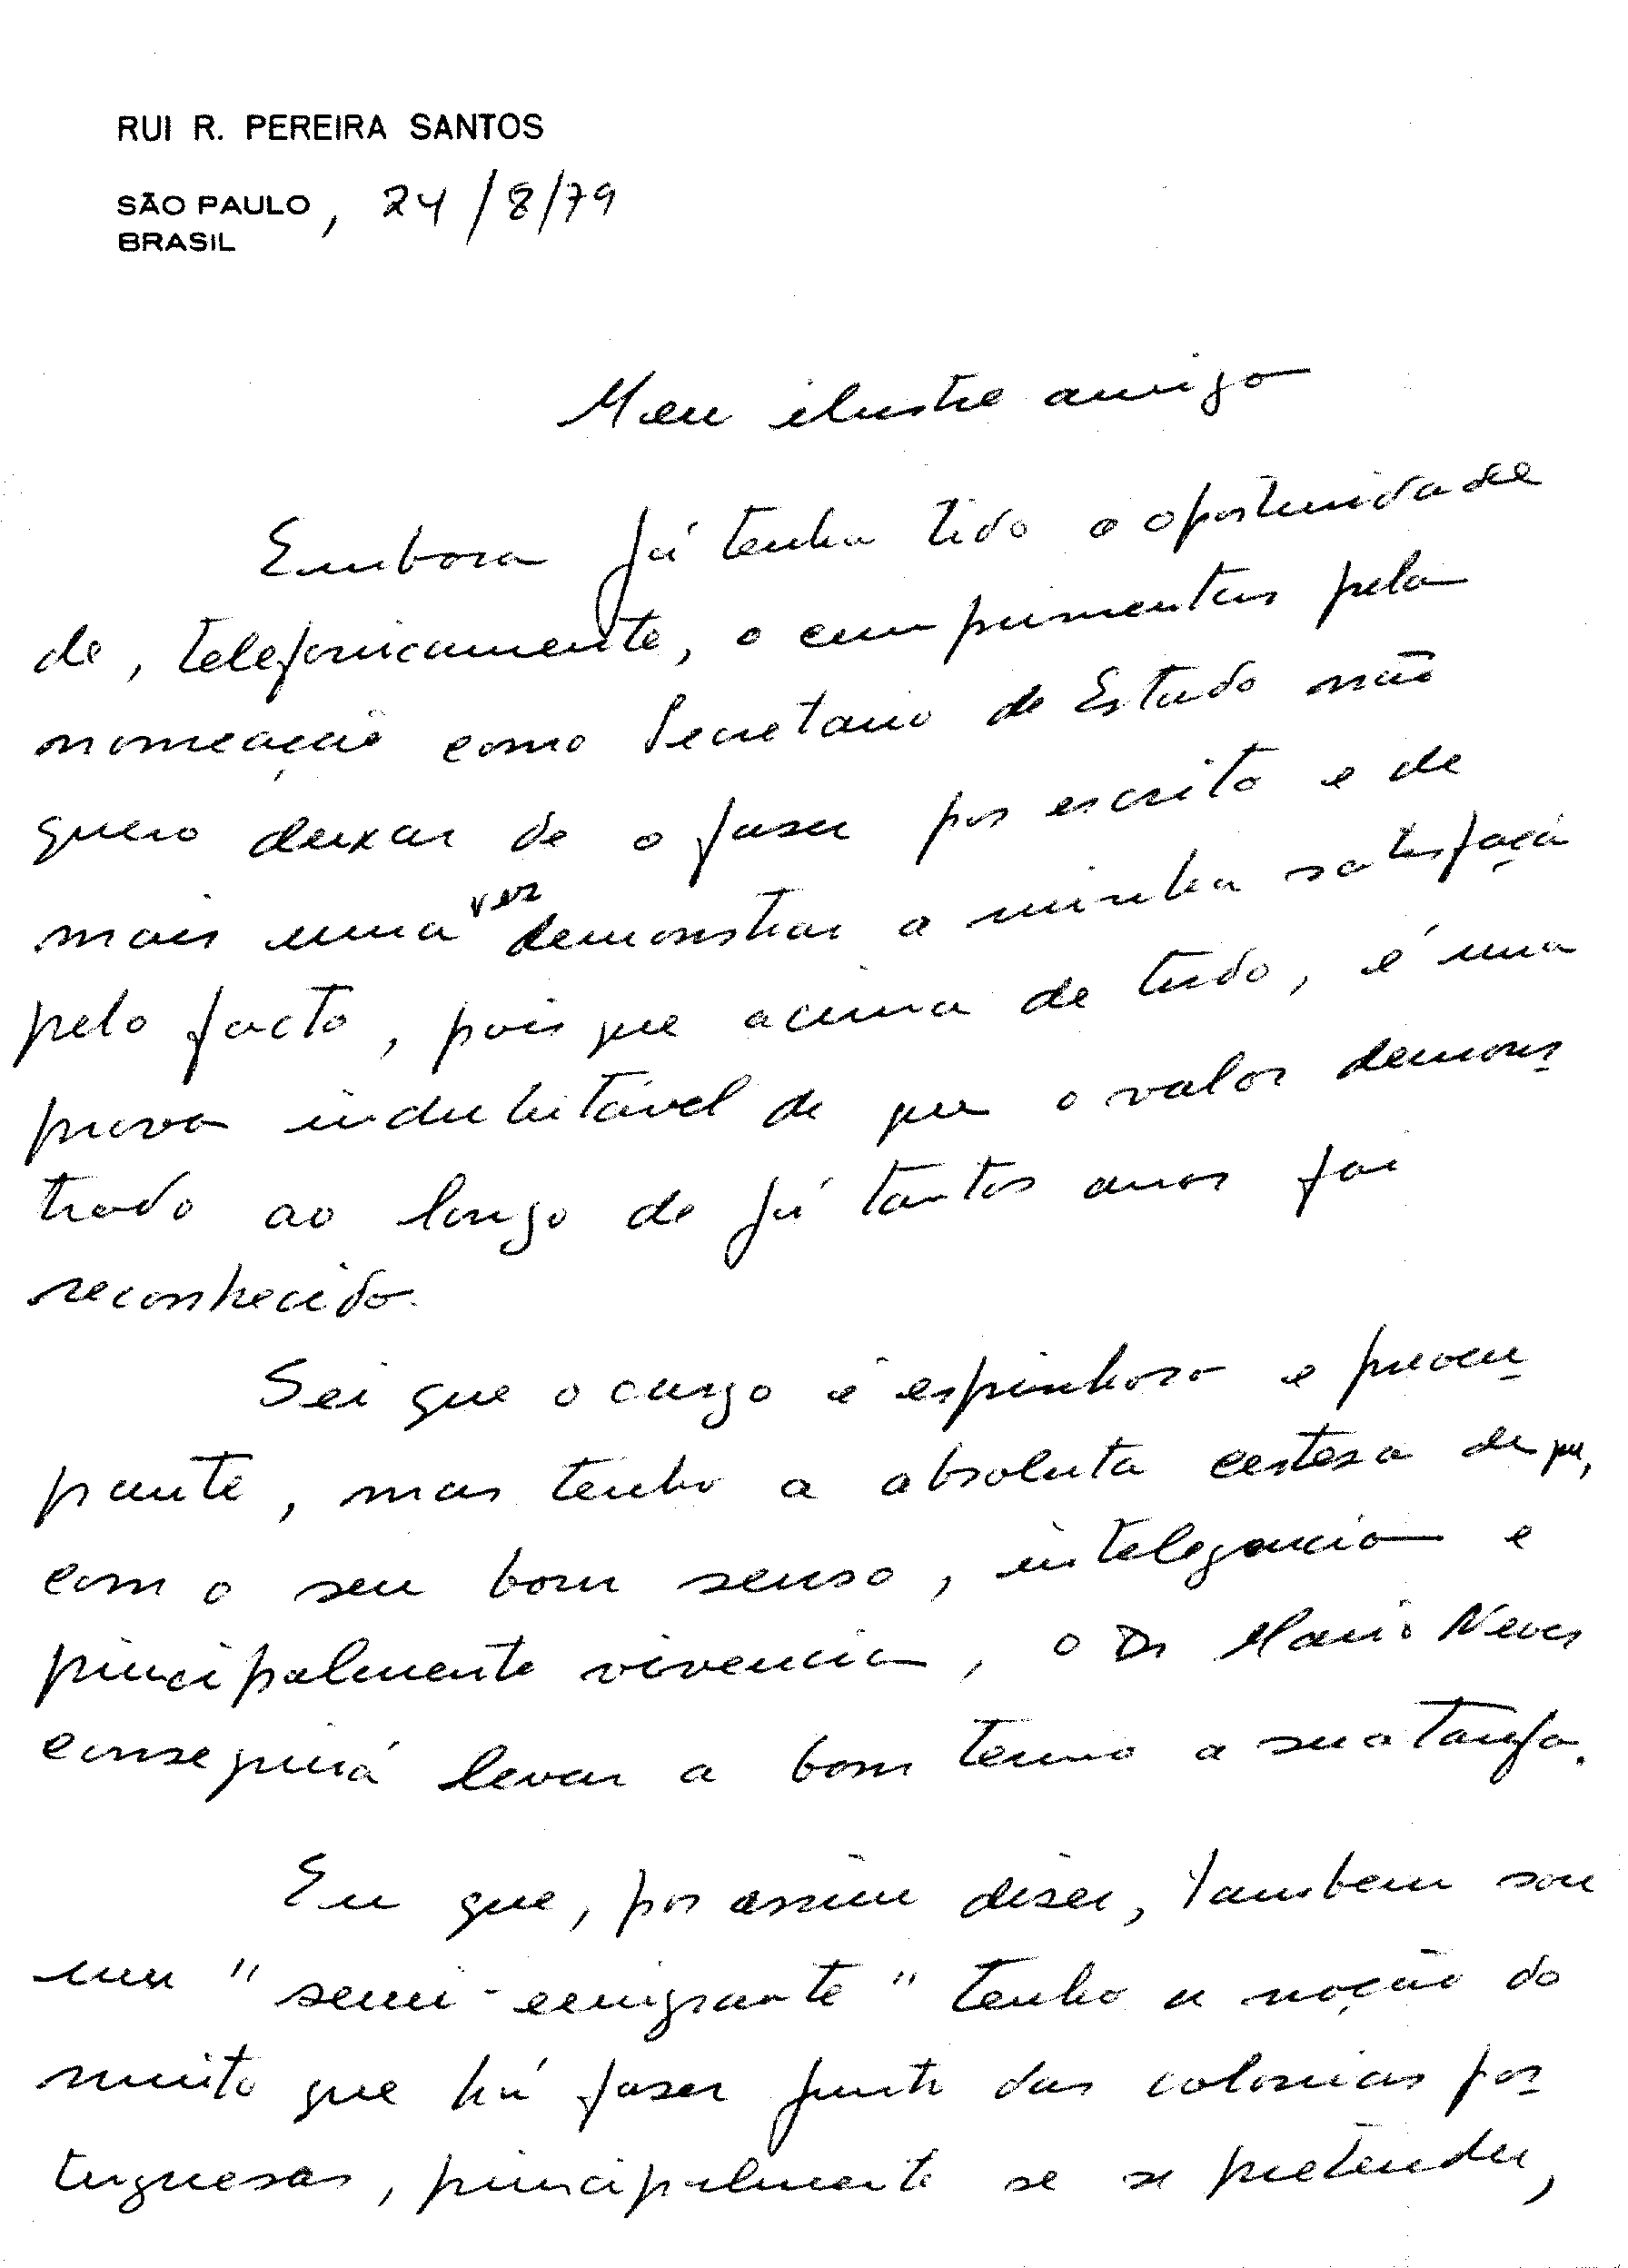 RUI R. PEREIRA SANTOS
SÃO PAULO, 24/8/79
BRASIL
Meu ilustre amigo
Embora já tenha tido a oportunidade
de, telefonicamente, o cumprimentar pela
nomeação como Secretario de Estado não
quero deixar de o faser por escrito e de
mais uma vez demonstrar a minha satisfação
pelo facto, pois que acima de tudo, é uma
prova indubitável de que o valor demons
trado ao longo de já tantos anos foi
reconhecido.
Sei que o cargo é espinhoso e preocu
pante, mas tenho a absoluta certesa de que,
com o seu bom senso, intelegencia e
principalmente vivencia, o Dr Mario Neves
conseguirá levar a bom termo a sua tarefa.
Eu que, por assim diser, tambem sou
um "semi-emigrante" tenho a noção do
muito que há faser junto das colonias por
tuguesas, principalmente se se pretender,